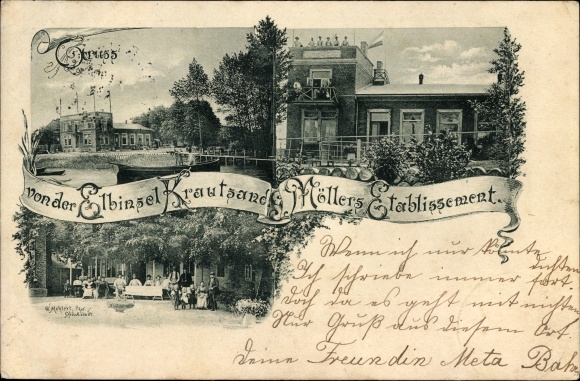 Gruss
von der Elbinsel Krautsand, Möllers Etablissement.
Wenn ich nur könnte dichten
Ich schriebe immer fort
Doch da es geht mit nichten
Nur Gruß aus diesem Ort.
Deine Freundin Meta